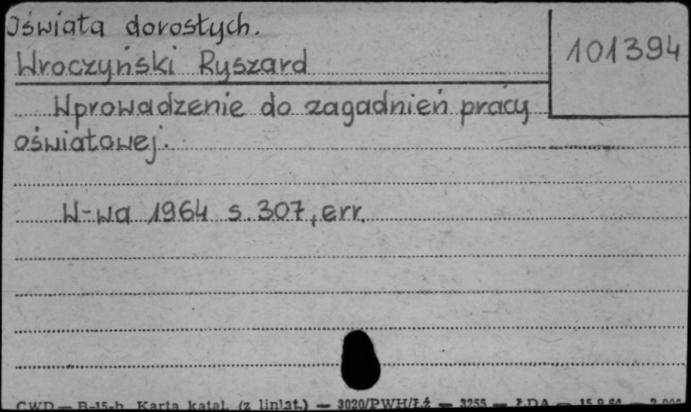 Oświata dorosłych.
101394
Wroczyński Ryszard
Wprowadzenie do zagadnień pracy
oświatowej.
W-wa 1964 s. 307, err.
CWD — B-15-b Karta katal. (z liniat.) — 3020/PWH/Łź — 3255 — ŁDA — 15.9.64 —